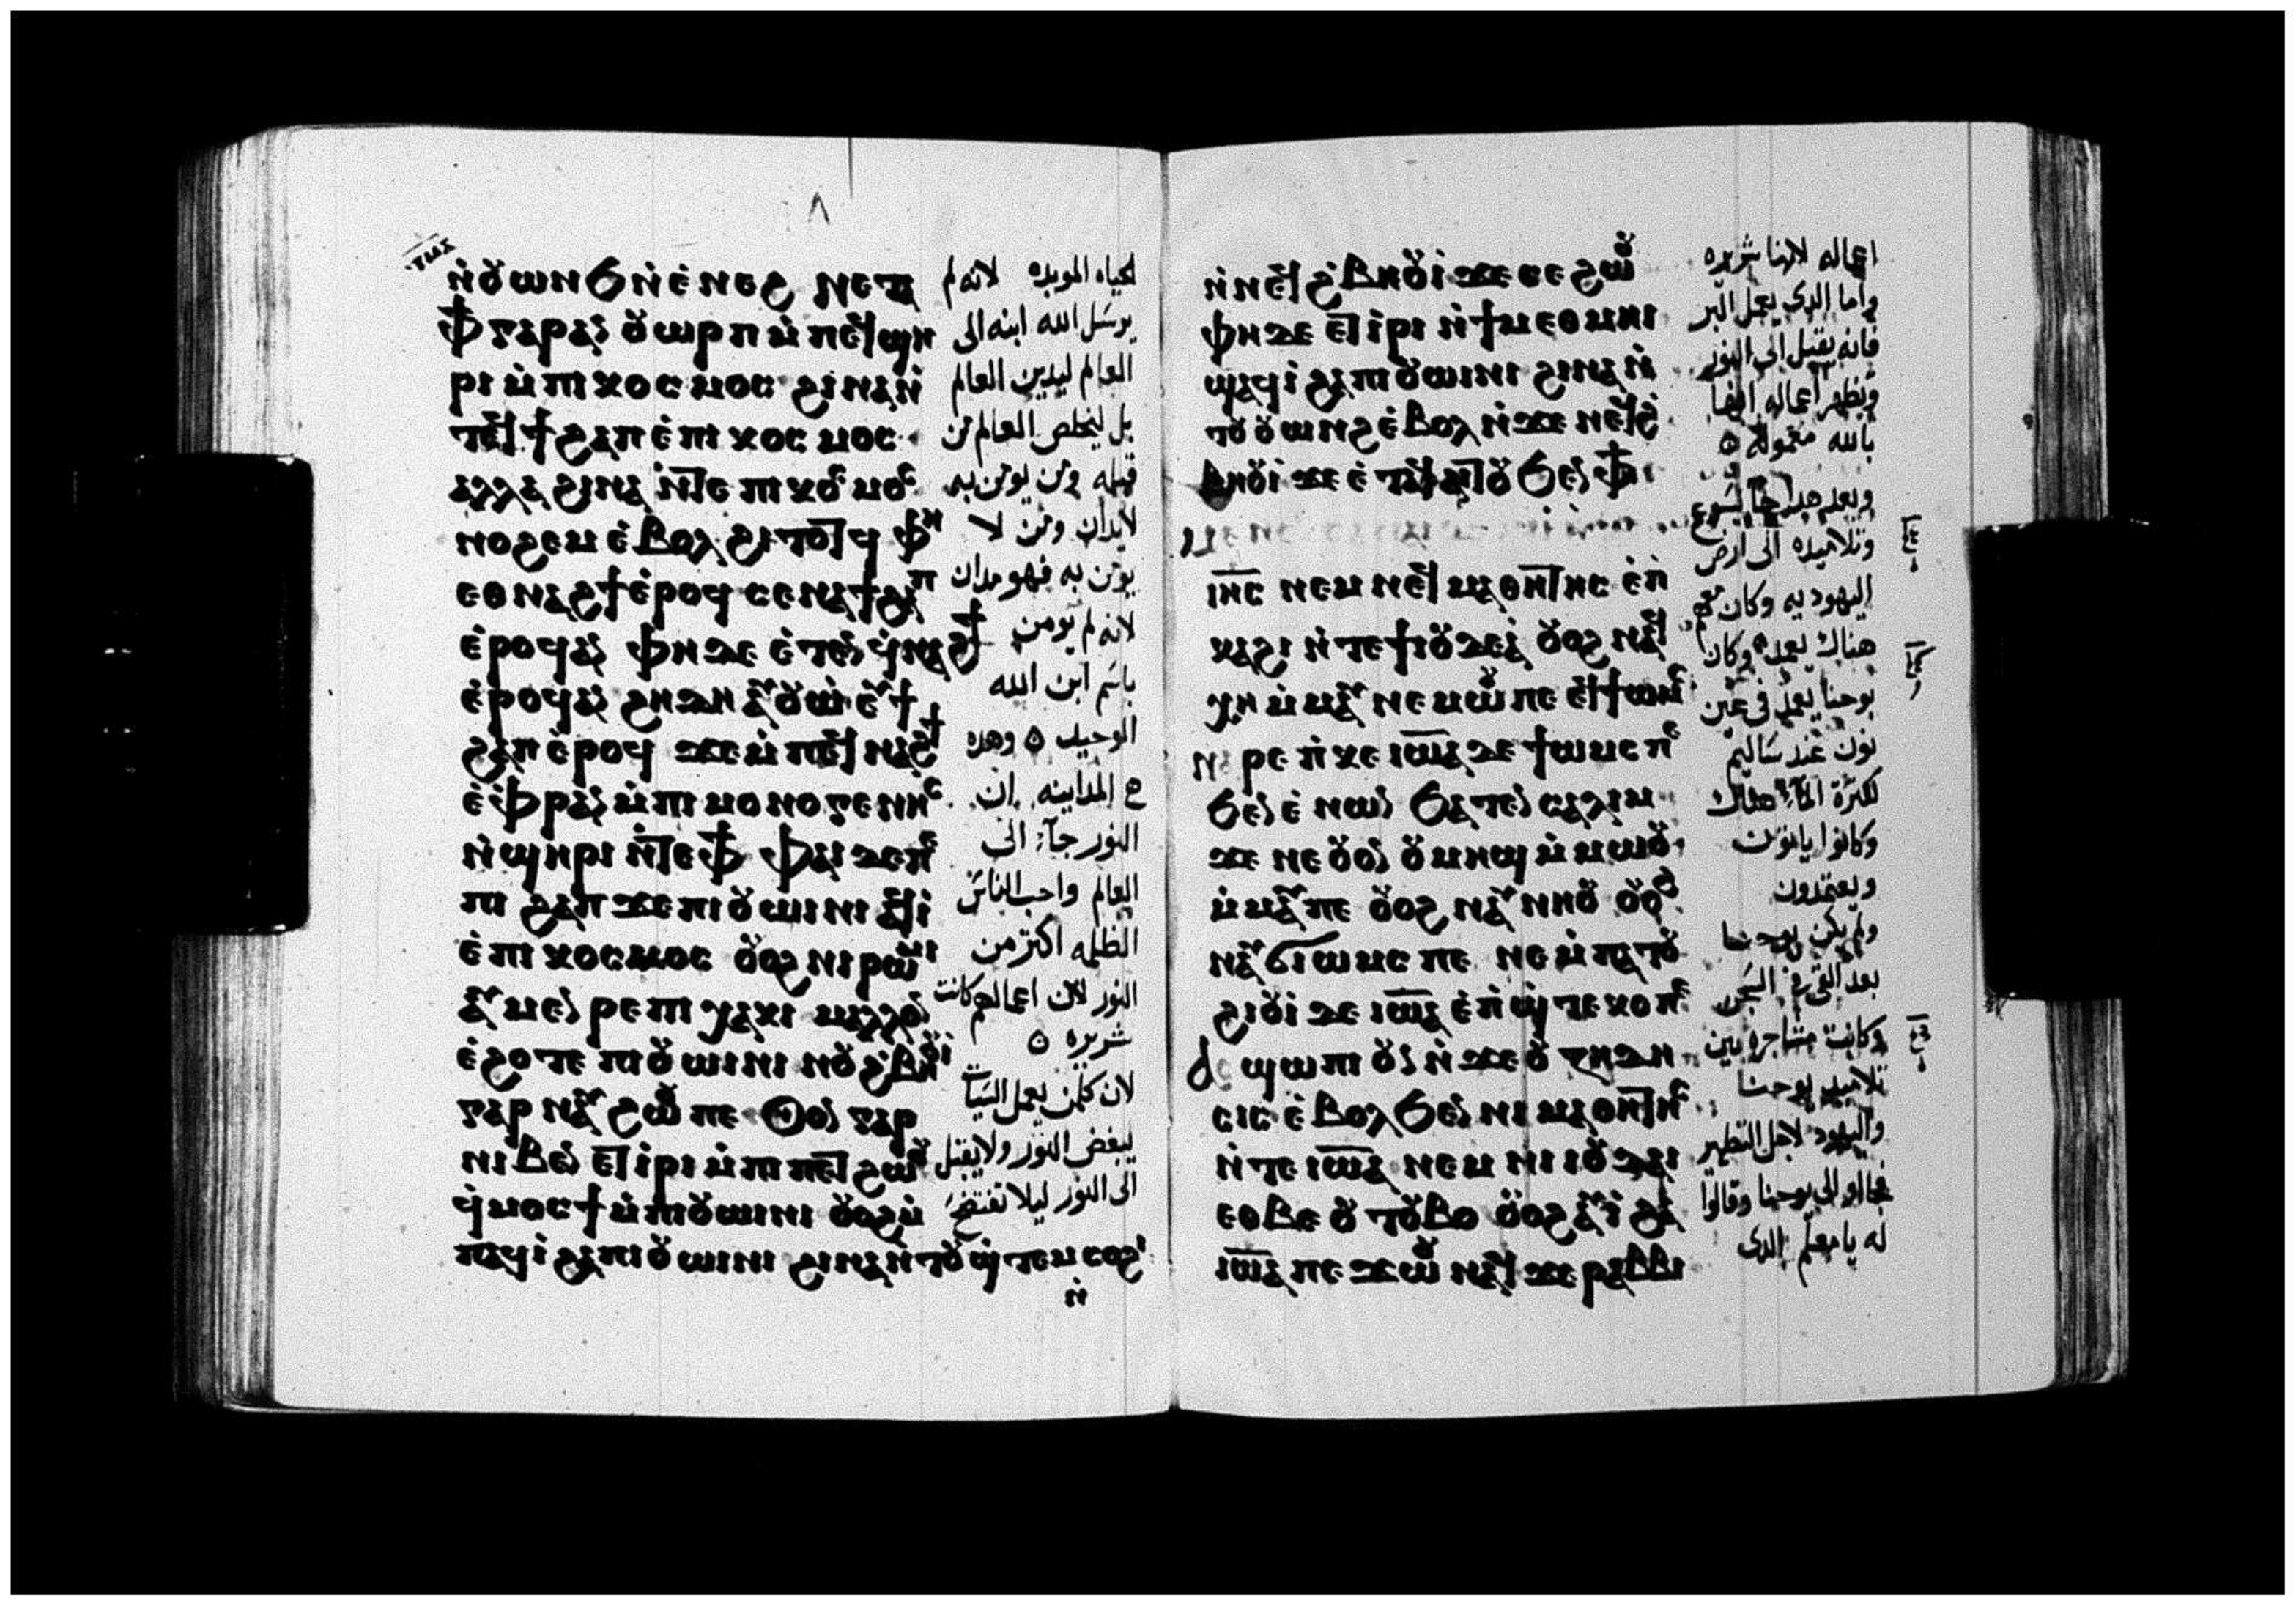 ⲛ̀ⲟⲩⲱⲛϧ ⲛ̀ⲉ̀ⲛⲉϩ ⲛⲉⲧⲁ
ⲫϯ ⲅⲁⲣ ⲁⲛ ⲟⲩⲱⲣⲡ ⲙ̀ⲡⲉϥϣⲏ
ⲣⲓ ⲙ̀ⲡⲓⲕⲟⲥⲙⲟⲥ ϩⲓⲛⲁ ⲛ̀
ⲧⲉϥϯϩⲁⲡ ⲉ̀ⲡⲓⲕⲟⲥⲙⲟⲥ
ⲁⲗⲗⲁ ϩⲓⲛⲁ ⲛ̀ⲧⲉ ⲡⲓⲕⲟⲥⲙⲟⲥ
ⲛⲟϩⲉⲙ ⲉ̀ⲃⲟⲗ ϩⲓⲧⲟⲧϥ ⲫⲏ
ⲉⲑⲛⲁϩϯ ⲉ̀ⲣⲟϥ ⲥⲉⲛⲁϯϩⲁⲡ
ⲉ̀ⲣⲟϥ ⲁⲛ ⲫⲏ ⲇⲉ ⲉ̀ⲧⲉⲛϥ̀ⲛⲁϩϯ
ⲉ̀ⲣⲟϥ ⲁⲛ ϩⲏⲇⲏ ⲁⲩⲟⲩⲱ ⲉⲩϯ
ϩⲁⲡ ⲉ̀ⲣⲟϥ ϫⲉ ⲙ̀ⲡⲉϥⲛⲁϩϯ
ⲉ̀ⲫⲣⲁⲛ ⲙ̀ⲡⲓⲙⲟⲛⲟⲅⲉⲛⲏⲥ
ⲛ̀ϣⲏⲣⲓ ⲛ̀ⲧⲉ ⲫϯ ⲫⲁⲓ ⲇⲉ ⲡⲉ
ⲡⲓ ϩⲁⲡ ϫⲉ ⲡⲓⲟⲩⲱⲓⲛⲓ ⲁϥⲓ̀
ⲉ̀ⲡⲓⲕⲟⲥⲙⲟⲥ ⲟⲩⲟϩ ⲛⲓⲣⲱⲙⲓ
ⲁⲩⲙⲉⲛⲣⲉ ⲡⲓⲭⲁⲕⲓ ⲙⲁⲗⲗⲟⲛ
ⲉ̀ϩⲟⲧⲉ ⲡⲓⲟⲩⲱⲓⲛⲓ ⲛⲟⲩϩ̀ⲃⲏⲟⲩⲓ̀
ⲅⲁⲣ ⲛⲁⲩϩⲱⲟⲩ ⲡⲉ ⲟⲩⲟⲛ ⲅⲁⲣ
ⲛⲓⲃⲉⲛ ⲉⲧⲓ̀ⲣⲓ ⲙ̀ⲡⲓⲡⲉⲧϩⲱⲟⲩ
ϥ̀ⲙⲟⲥϯ ⲙ̀ⲡⲓⲟⲩⲱⲓⲛⲓ ⲟⲩⲟϩ ⲙ̀
ⲡⲁϥⲓ̀ ϩⲁ ⲡⲓⲟⲩⲱⲓⲛⲓ ϩⲓⲛⲁ ⲛ̀ⲧⲟⲩϣ̀ⲧⲉⲙⲥⲟϩⲓ
ⲛ̀
لحياه الموبده لانه لم
يرسل الله ابنه الى
العالم ليدين العالم
بل ليخلص العالم من
قبله ومن يومن به
لايدان ومن لا
يومن به فهو مدان
لانه لم يومن
باسم ابن الله
الوحيد ه وهده
هي المداينه ان
النور جآء الى
العالم واحب الناس
الظلمه اكتر من
النور لان اعمالهم كانت
شريره ه
لان كلمن يعمل السيات
يبغض النور ولا يقبل
الى النور ليلا تفتضح
ⲛ̀ⲛⲉϥϩ̀ⲃⲏⲟⲩⲓ̀ ϫⲉ ⲥⲉϩⲱⲟⲩ
ⲫⲏ ⲇⲉ ⲉⲧⲓ̀ⲣⲓ ⲛ̀ϯⲙⲉⲑⲙⲏⲓ
ϣⲁϥⲓ̀ ϩⲁ ⲡⲓⲟⲩⲱⲓⲛⲓ ϩⲓⲛⲁ ⲛ̀
ⲧⲟⲩⲟⲩⲱⲛϩ ⲉ̀ⲃⲟⲗ ⲛ̀ϫⲉ ⲛⲉϥϩ̀
ⲃⲏⲟⲩⲓ̀ ϫⲉ ⲉ̀ⲧⲁϥⲁⲓⲧⲟⲩ ϧⲉⲛ ⲫϯ
ⲓⲏⲥ ⲛⲉⲙ ⲛⲉϥⲙⲁⲑⲏⲧⲏⲥ ⲉ̀ⲡ̀
ⲕⲁϩⲓ ⲛ̀ⲧⲉ ϯⲓⲟⲩⲇⲉⲁ̀ ⲟⲩⲟϩ ⲛⲁϥ
ⲭⲏ ⲙ̀ⲙⲁⲩ ⲛⲉⲙⲱⲟⲩ ⲡⲉ ⲉϥϯⲱⲙⲥ
ⲛⲁⲣⲉ ⲡ̀ⲕⲉ ⲓⲱⲁ ⲇⲉ ϯⲱⲙⲥ ⲡⲉ
ϧⲉⲛ ⲉ̀ⲛⲱⲛ ϧⲁⲧⲉⲛ ⲥⲁⲗⲓⲙ
ϫⲉ ⲛⲉ ⲟⲩⲟⲛ ⲟⲩⲙⲏϣ ⲙ̀ⲙⲱⲟⲩ
ⲙ̀ⲙⲁⲩ ⲡⲉ ⲟⲩⲟϩ ⲛⲁⲩⲛⲏⲟⲩ ⲟⲩⲟϩ
ⲛⲁⲩϭⲓⲱⲙⲥ ⲡⲉ ⲛⲉ ⲙ̀ⲡⲁⲧⲟⲩ
ϩⲓⲟⲩⲓ̀ ⲇⲉ ⲓⲱⲁ ⲉ̀ⲡ̀ϣ̀ⲧⲉⲕⲟ ⲡⲉ
ϣⲱⲡⲓ ⲟⲩⲛ ⲛ̀ϫⲉ ⲟⲩⲍⲏⲇⲏ
ⲥⲓⲥ ⲉ̀ⲃⲟⲗ ϧⲉⲛ ⲛⲓⲙⲁⲑⲏⲧⲏⲥ
ⲛ̀ⲧⲉ ⲓⲱⲁ ⲛⲉⲙ ⲛⲓⲓⲟⲩⲇⲁⲓ
ⲉⲑⲃⲉ ⲟⲩⲧⲟⲩⲃⲟ ⲟⲩⲟϩ ⲁⲩⲓ̀ ϩⲁ
ⲓⲱⲁ ⲡⲉϫⲱⲟⲩ ⲛⲁϥ ϫⲉ ⲣⲁⲃⲃⲓ
اعماله لانها شريره
واما الدى يعمل البر
فانه يقبل الى النور
ويظهر اعماله انها
بالله معموله ه
وبعد هدا جآ يسوع
وتلاميده الى ارض
اليهوديه وكان معهم
هناك يعمد وكان
يوحنا يعمد فى عين
نون عند ساليم
لكترة المآء هناك
وكانوا ياتون
ويعتمدون
ولم يكن يوحنا
بعد القى فى السجن
وكانت مشاجره بين
تلاميد يوحنا
واليهود لاجل التطهير
فجاءو الى يوحنا وقالوا
له يا معلم الدى